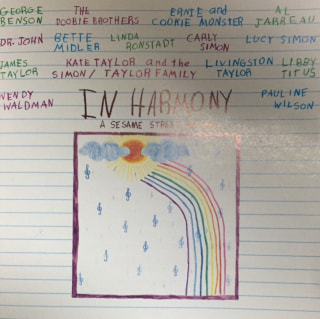 GEORGE BENSON THE DOOBIE BROTHERS ERNIE and COOKIE MONSTER AL JARREAU
DR. JOHN BETTE MIDLER LINDA RONSTADT CARLY SIMON LUCY SIMON
JAMES TAYLOR KATE TAYLOR and the SIMON/TAYLOR FAMILY LIVINGSTON TAYLOR LIBBY TITUS
WENDY WALDMAN PAULINE WILSON
IN HARMONY
A SESAME